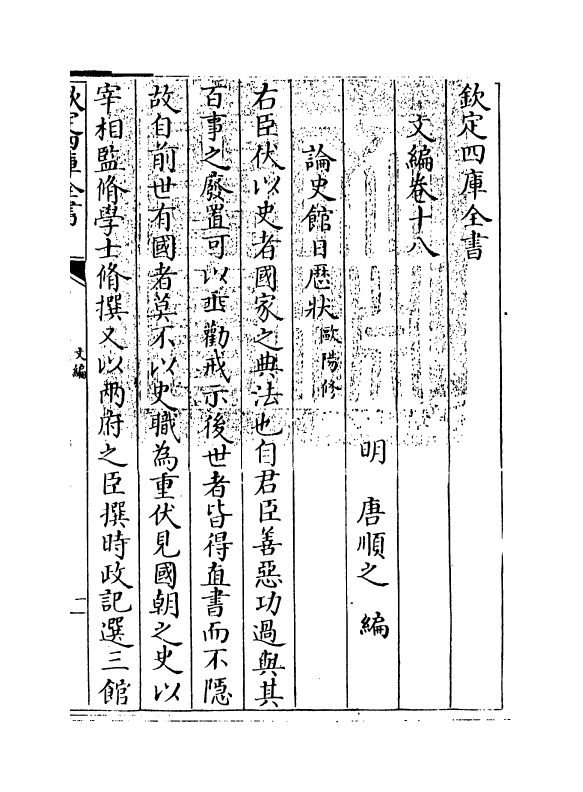 欽定四庫全書
文編卷十八
明 唐順之 編
論史館日歴狀歐陽修
右臣伏以史者國家之典法也自君臣善惡功過與其
百事之廢置可以垂勸戒示後世者皆得直書而不隱
故自前世有國者莫不以史職為重伏見國朝之史以
宰相監脩學士脩撰又以兩府之臣撰時政記選三館
欽定四庫全書
文編
一